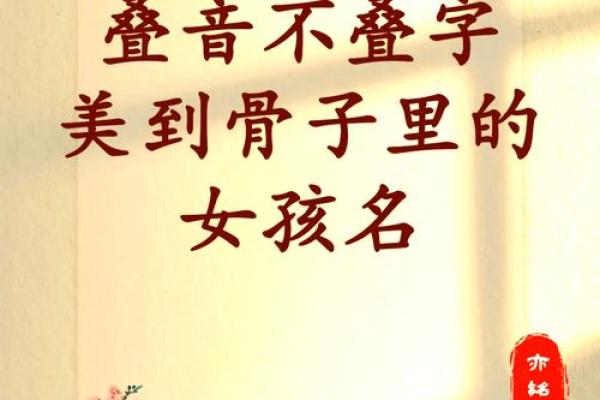 叠音不叠字
美到骨子里的
女孩名
亦
铭